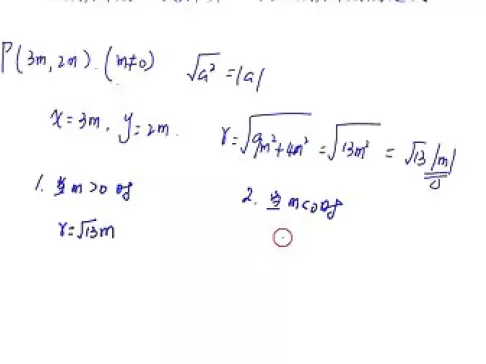 P(3m, 2m). (m≠0) √a² = |a|
x = 3m, y = 2m. r = √9m²+4m² = √13m² = √13 |m|
1. 当 m > 0 时 2. 当 m < 0 时
r = √13 m